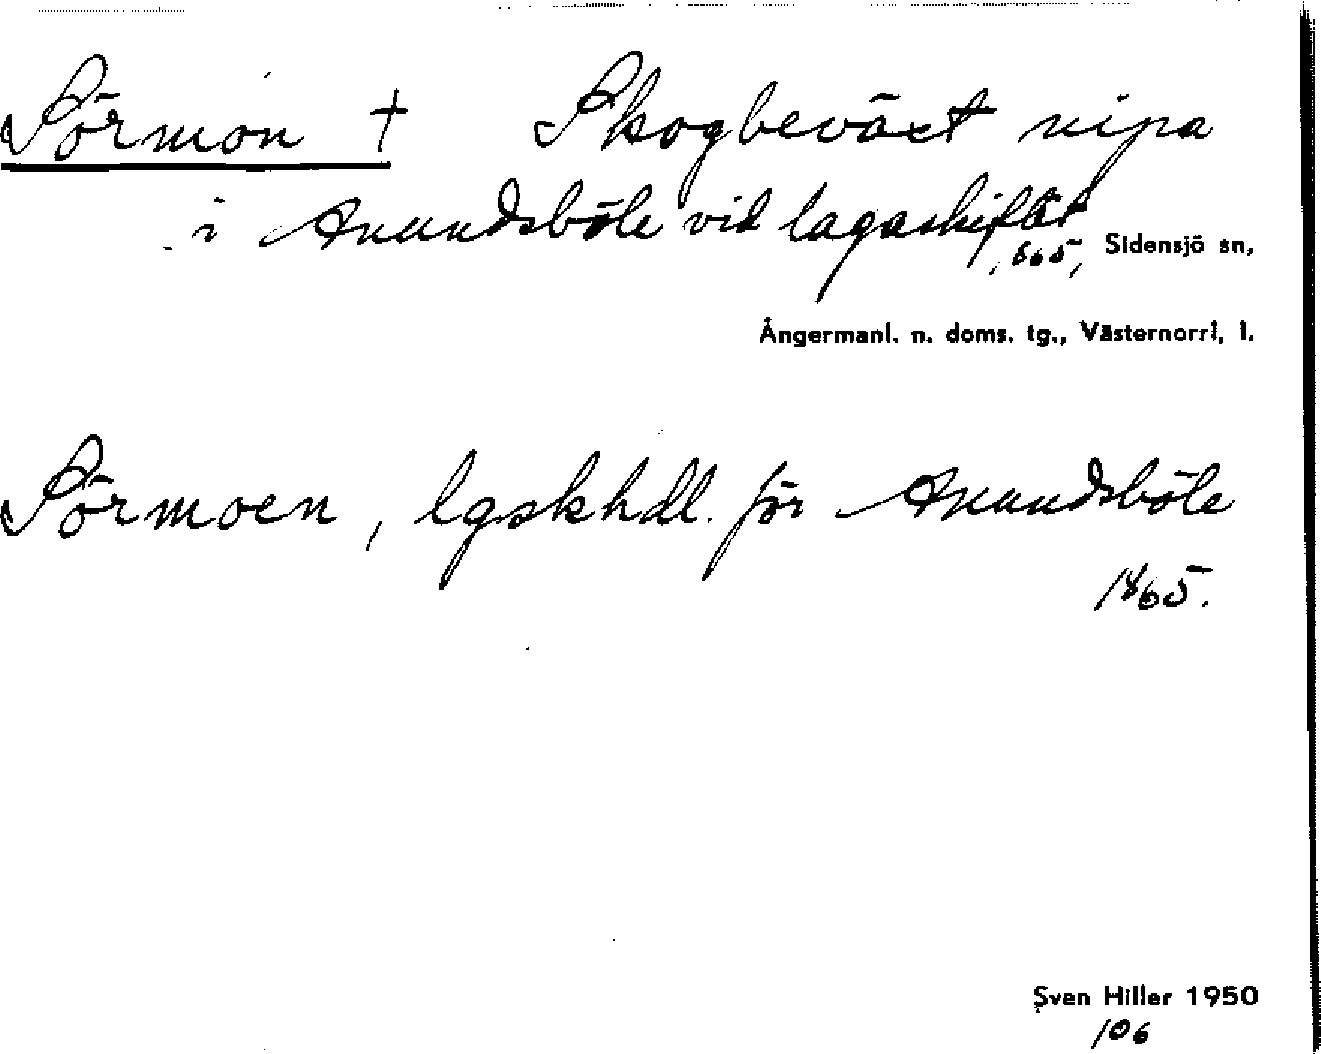 Sörmon † Skogbeväxt nipa
i Anundsböle vid lagaskiftet
1865, Sidensjö sn,
Ångermanl. n. doms. tg., Västernorrl. l.
Sörmoen, lgskhdl. för Anundsböle
1865.
Sven Hiller 1950
106